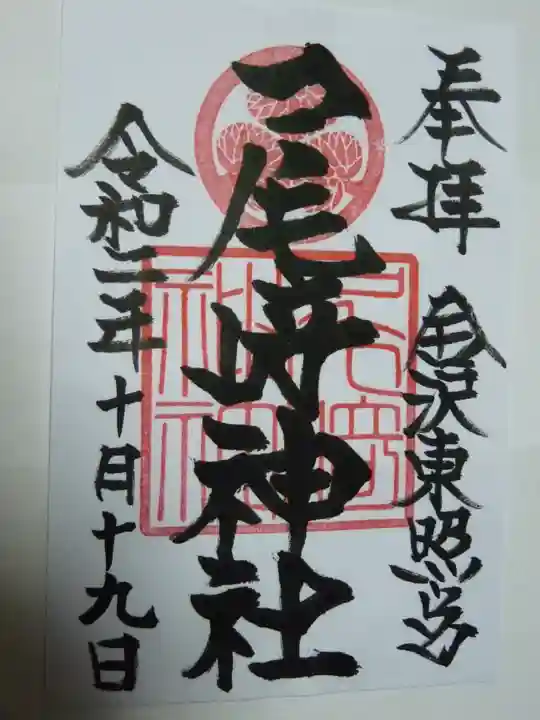 奉拝
金沢東照宮
尾崎神社
令和二年十月十九日